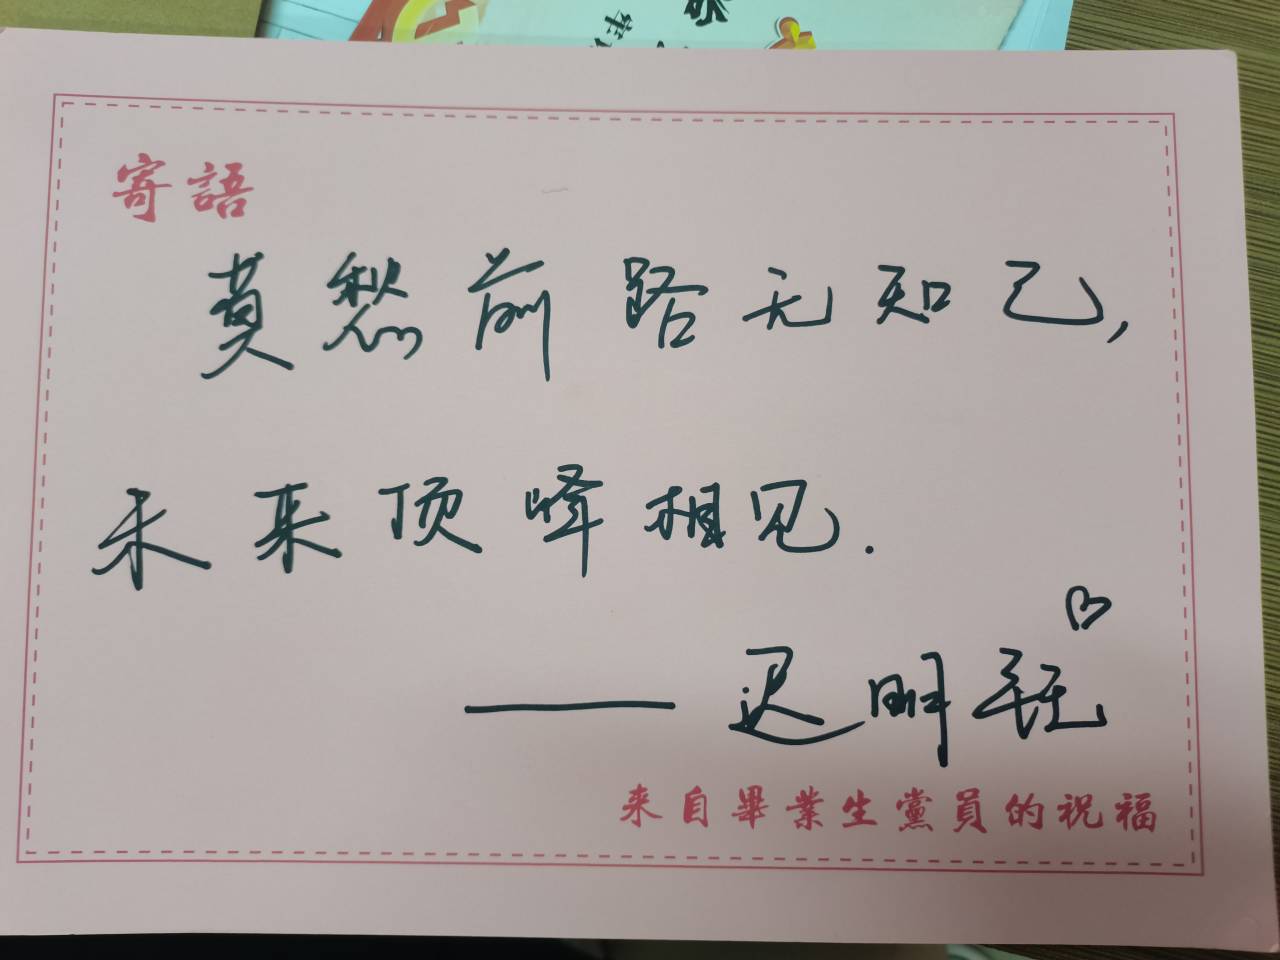 寄語
莫愁前路无知己，
未来顶峰相见.
——迟明
来自畢業生黨員的祝福